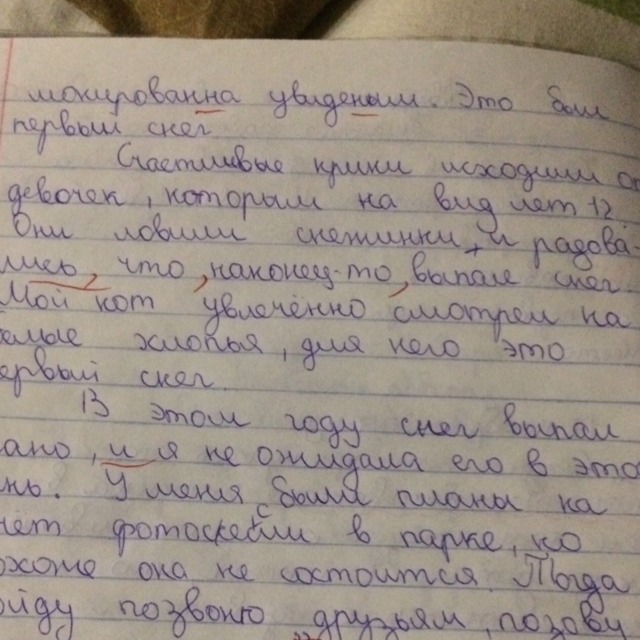 мокированна увиденым. Это был
первый снег
Счастливые крики исходили от
девочек, которым на вид лет 12
Они ловили снежинки и радова-
лись, что, наконец-то, выпал снег.
Мой кот увлечённо смотрел на
белые хлопья, для него это
первый снег.
В этом году снег выпал
рано, и я не ожидала его в это
нь. У меня были планы на
чёт фотосессии в парке, но
похоже она не состоится. Тогда
ойду позвоню друзьям, позову